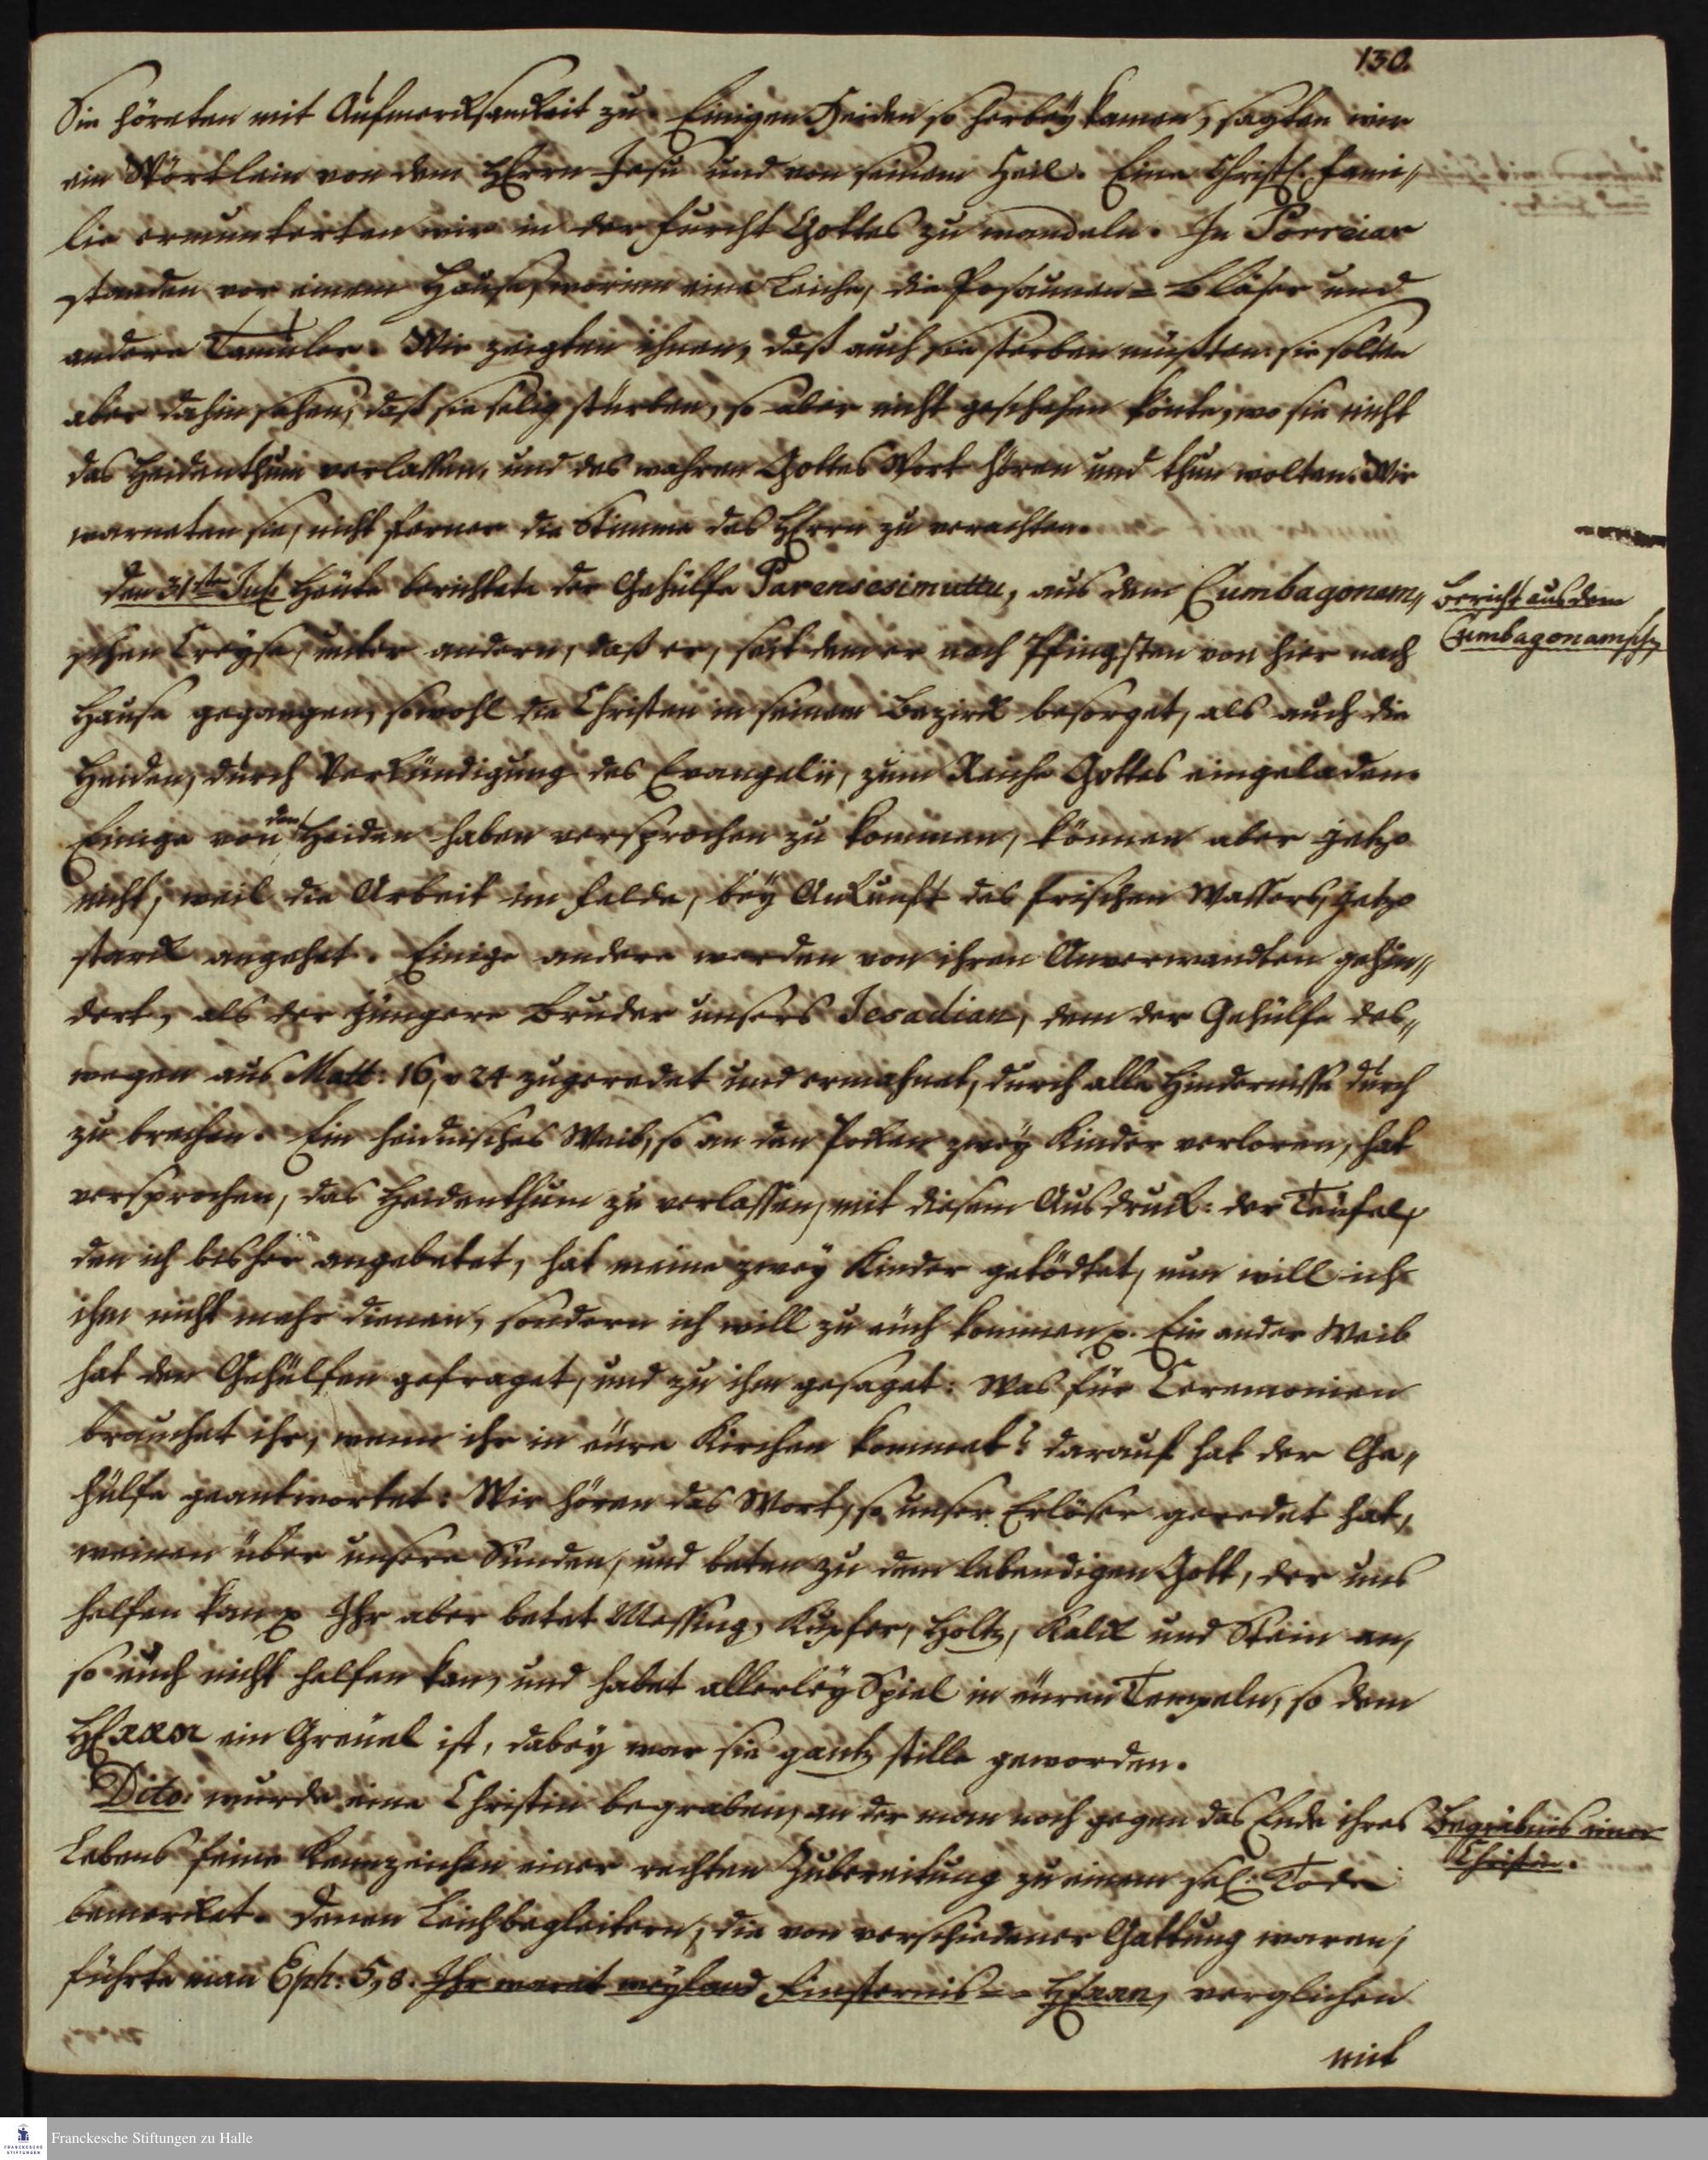 130.
Sie höreten mit Aufmercksamkeit zu. Einigen Heiden so herbey kamen, sagten wir
ein Wörtlein von dem HErrn Jesu und von seinem Heil. Eine Christl. Fami-
lie ermunterten wir in der Furcht Gottes zu wandeln. In Porreiar
standen vor einem Hause, worinn eine Leiche, die Posaunen-Bläser und
andere Tamuler. Wir zeigten ihnen, daß auch sie sterben müßten: sie solten
aber dahin sehen, daß sie selig stürben, so aber nicht geschehen könte, wo sie nicht
das Heidenthum verlassen, und des wahren Gottes Wort hören und thun wolten. Wir
warneten sie, nicht ferner die Stimme des HErrn zu verachten.
den 31sten Jul. Heute berichtete der Gehülfe Parensesimuttu, aus dem Cumbagonam-
schen Creyse, unter andern, daß er, seit dem er nach Pfingsten von hier nach
Hause gegangen, sowohl die Christen in seinem Bezirck besorget, als auch die
Heiden, durch Verkündigung des Evangelii, zum Reiche Gottes eingeladen.
Einige von den Heiden haben versprochen zu kommen, können aber jetzo
nicht, weil die Arbeit im Felde, bey Ankunft des frischen Wassers, jetzo
starck angehet. Einige andere werden von ihren Anverwandten gehin-
dert, als der jüngere Bruder unsers Jesadian, dem der Gehülfe des-
wegen aus Matt: 16, v 24 zugeredet und ermahnet, durch alle Hindernisse durch
zu brechen. Ein heidnisches Weib, so an den Pocken zwey Kinder verloren, hat
versprochen, das Heidenthum zu verlassen, mit diesem Ausdruck: der Teufel,
den ich bisher angebetet, hat meine zwey Kinder getödtet, nun will ich
ihm nicht mehr dienen, sondern ich will zu euch kommen p. Ein ander Weib
hat den Gehülfen gefraget, und zu ihm gesaget: Was für Ceremonien
brauchet ihr, wenn ihr in eure Kirchen kommet? darauf hat der Ge-
hülfe geantwortet: Wir hören das Wort, so unser Erlöser geredet hat,
weinen über unsere Sünden, und beten zu dem lebendigen Gott, der uns
helfen kan p Ihr aber betet Messing, Kupfer, Holtz, Kalck und Stein an,
so euch nicht helfen kan, und habet allerley Spiel in euren Tempeln, so dem
HErrn ein Greuel ist, dabey war sie gantz stille geworden.
Dito: wurde eine Christin begraben, an der man noch gegen das Ende ihres
Lebens feine Kennzeichen einer rechten Zubereitung zu einem sel. Tode
bemercket. Denen Leichbegleitern, die von verschiedener Gattung waren,
führte man Eph: 5, 8. Ihr waret weyland Finsternis - - HErrn, verglichen
mit
Bericht aus dem
Cumbagonamsch
Begräbnis einer
Christin.
Franckesche Stiftungen zu Halle
FRANCKESCHE
STIFTUNGEN